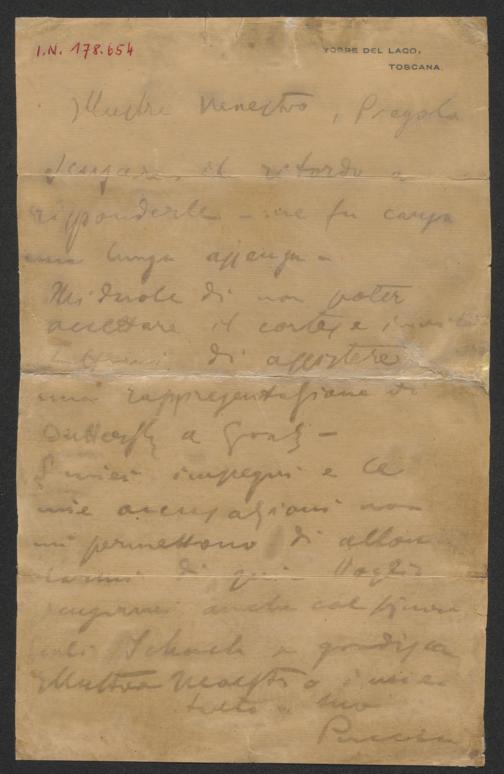 I.N. 178.654
TORRE DEL LAGO,
TOSCANA.
Illustre Maestro, Pregola
scusare il ritardo a
risponderle - ne fu causa
una lunga assenza -
Mi duole di non poter
accettare il cortese invito
di assistere
una rappresentazione di
Butterfly a Graz -
I miei impegni e le
mie occupazioni non
mi permettono di allon
tanarmi di qui. Voglia
scusarmi anche col signore
Schach e gradisca
Illustre Maestro i miei
suo
Puccini